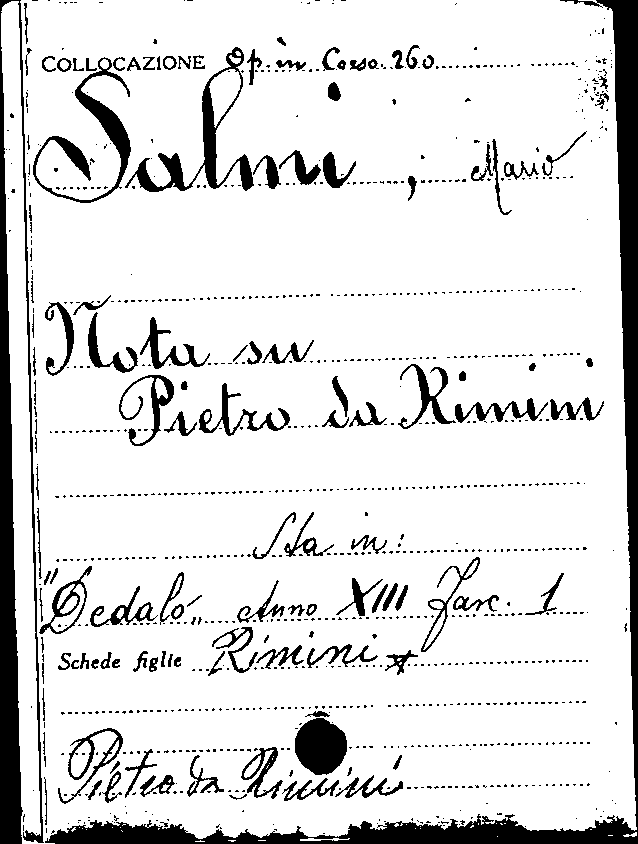 COLLOCAZIONE Op. in Corso. 260
Salmi, Mario
Nota su
Pietro da Rimini
Sta in:
"Dedalo„ Anno XIII Fasc. 1
Schede figlie Rimini
Pietro da Rimini